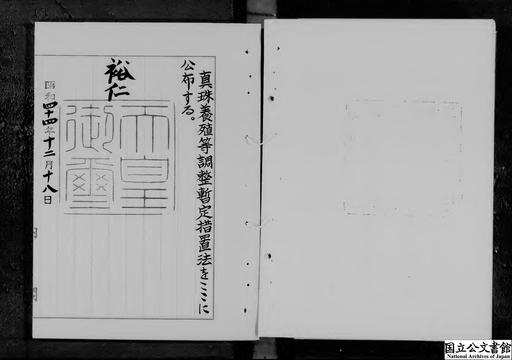 真珠養殖等調整暫定措置法をここに
公布する。
裕仁
天皇
御璽
昭和四十四年十二月十八日
国立公文書館
National Archives of Japan